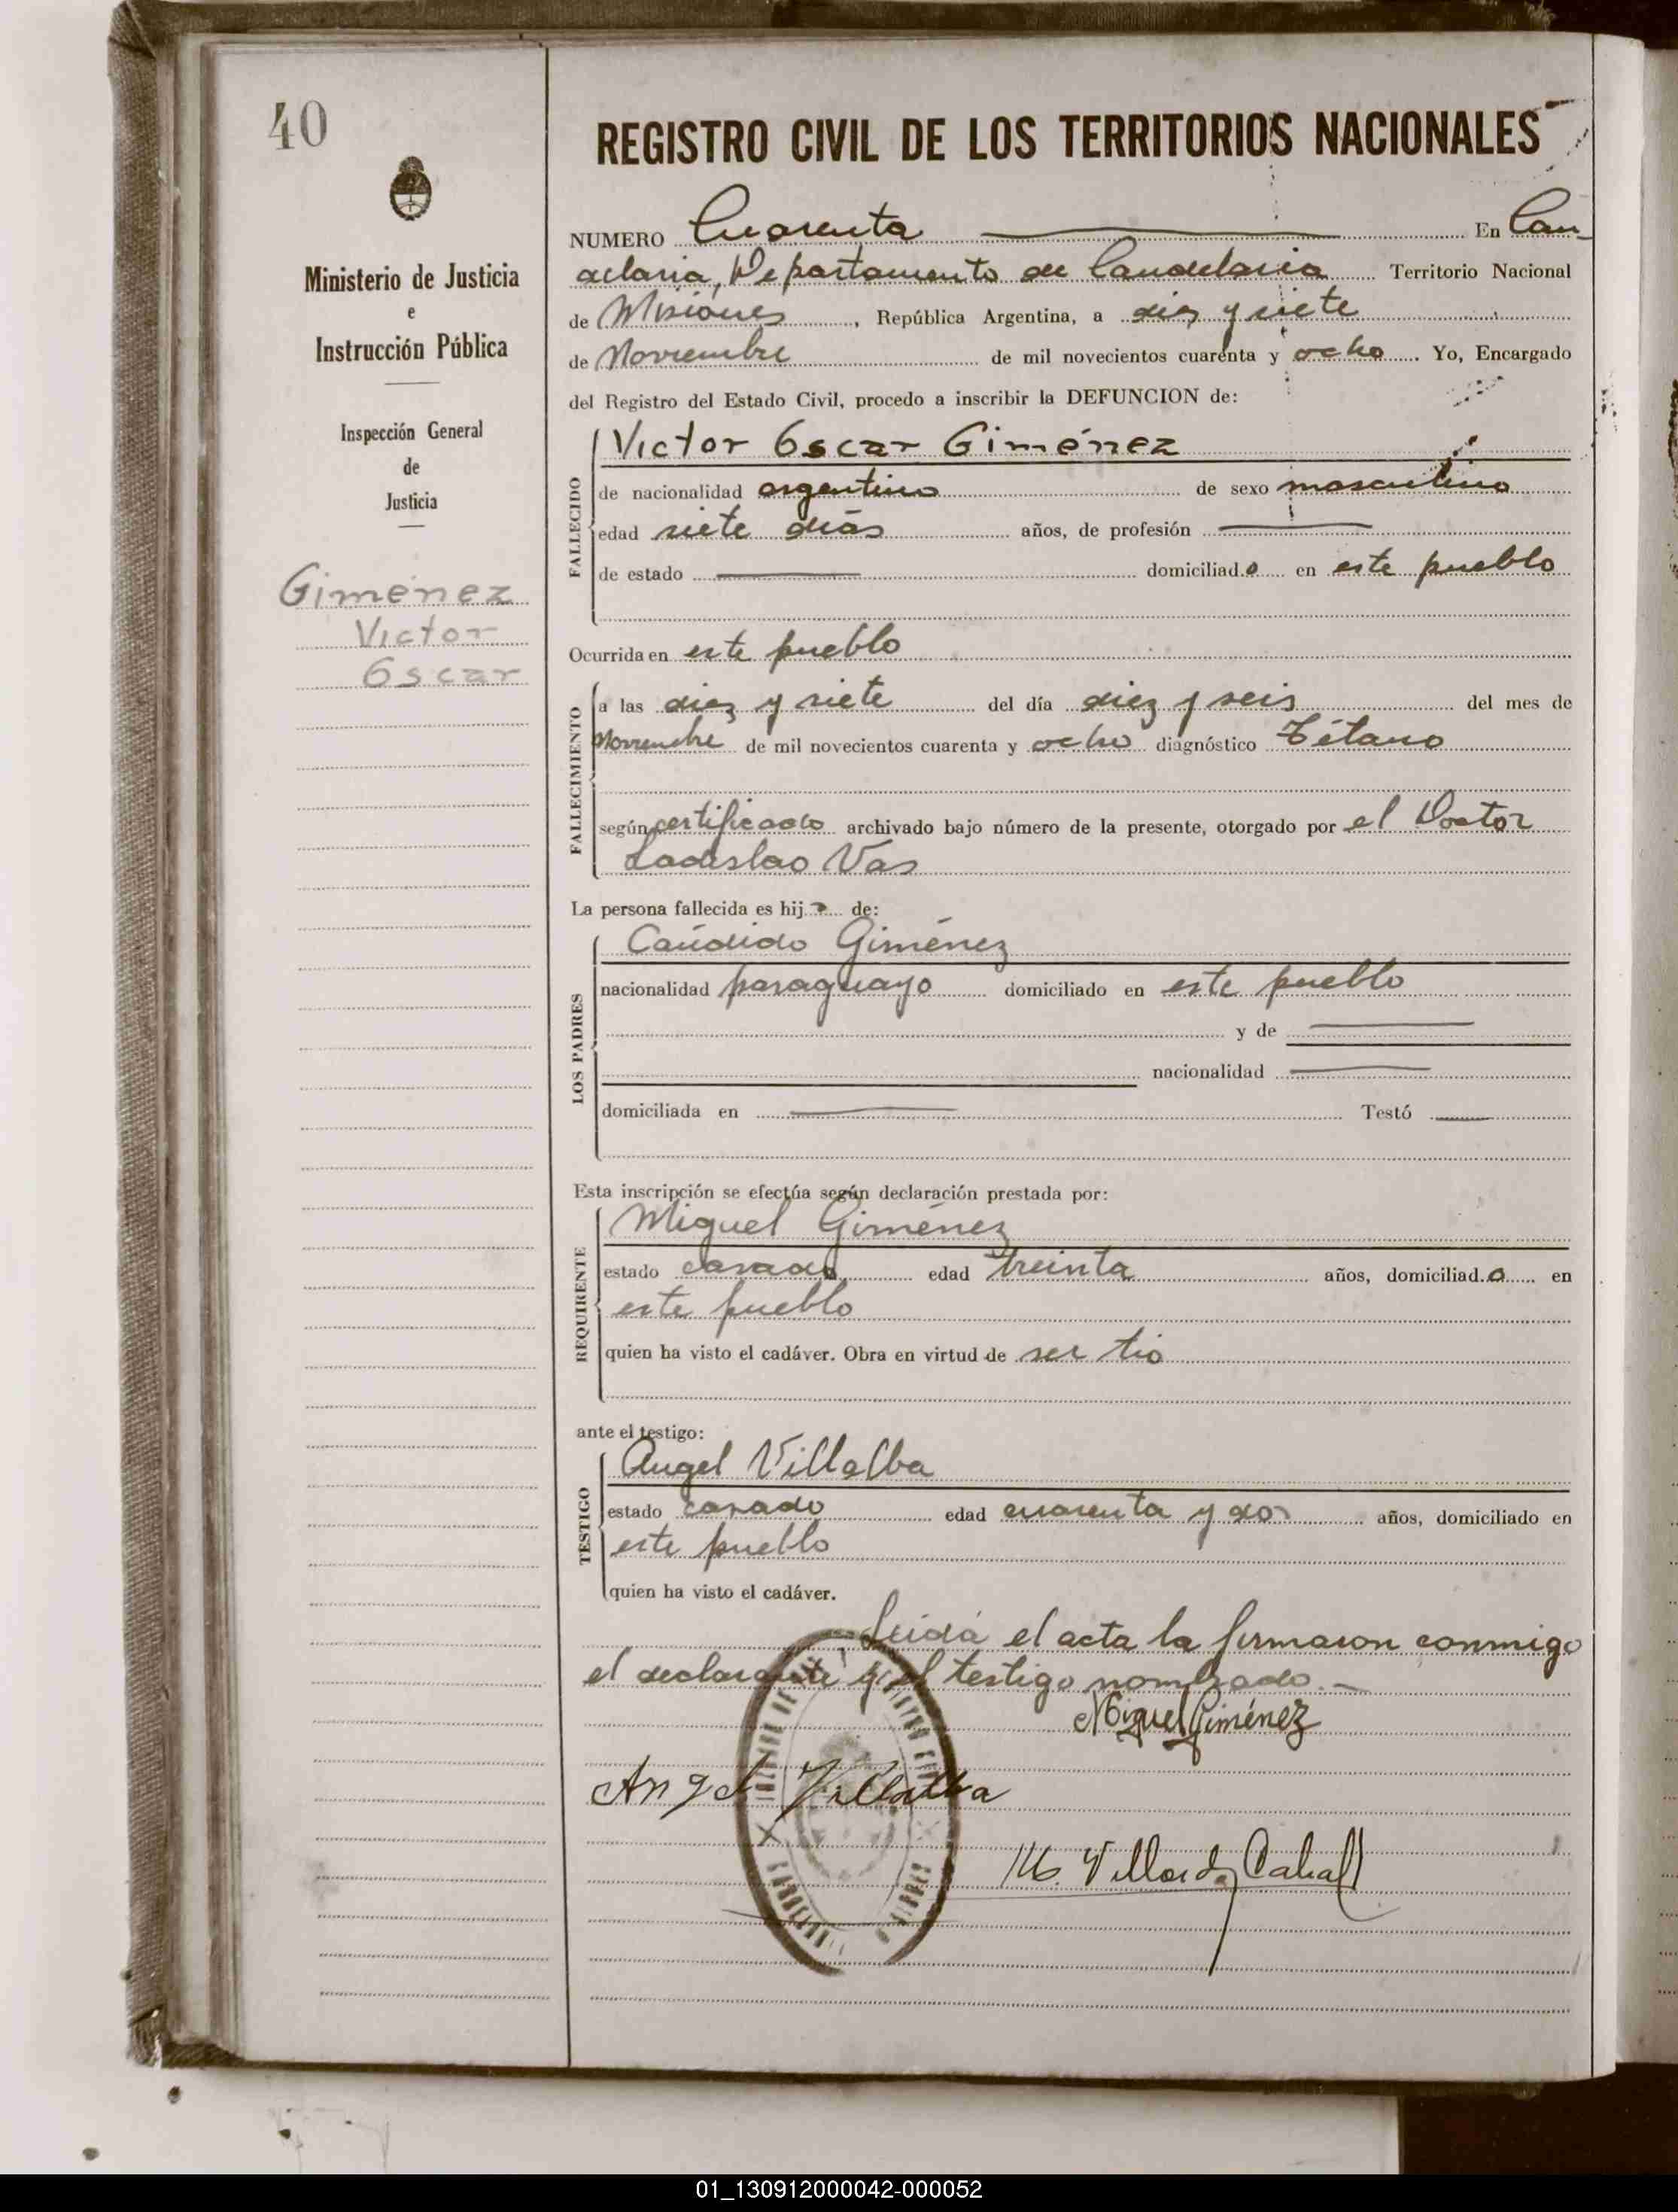 40
Ministerio de Justicia
e
Instrucción Pública
Inspección General
de
Justicia
Giménez
Victor
Oscar
REGISTRO CIVIL DE LOS TERRITORIOS NACIONALES
NUMERO Cuarenta En Can-
delaria, Departamento de Candelaria Territorio Nacional
de Misiones, República Argentina, a diez y siete
de Noviembre de mil novecientos cuarenta y ocho. Yo, Encargado
del Registro del Estado Civil, procedo a inscribir la DEFUNCION de:
FALLECIDO
Victor Oscar Giménez
de nacionalidad argentino de sexo masculino
edad siete dias años, de profesión
de estado domiciliado en este pueblo
Ocurrida en este pueblo
FALLECIMIENTO
a las diez y siete del día diez y seis del mes de
Noviembre de mil novecientos cuarenta y ocho diagnóstico Tétano
según certificado archivado bajo número de la presente, otorgado por el Doctor
Ladislao Vas
La persona fallecida es hijo de:
LOS PADRES
Cándido Giménez
nacionalidad paraguayo domiciliado en este pueblo
y de
nacionalidad
domiciliada en Testó
Esta inscripción se efectúa según declaración prestada por:
REQUIRENTE
Miguel Giménez
estado casado edad treinta años, domiciliado en
este pueblo
quien ha visto el cadáver. Obra en virtud de ser tio
ante el testigo:
TESTIGO
Angel Villalba
estado casado edad cuarenta y dos años, domiciliado en
este pueblo
quien ha visto el cadáver.
Leida el acta la firmaron conmigo
el declarante y el testigo nombrado.-
Miguel Giménez
Angel Villalba
01_130912000042-000052